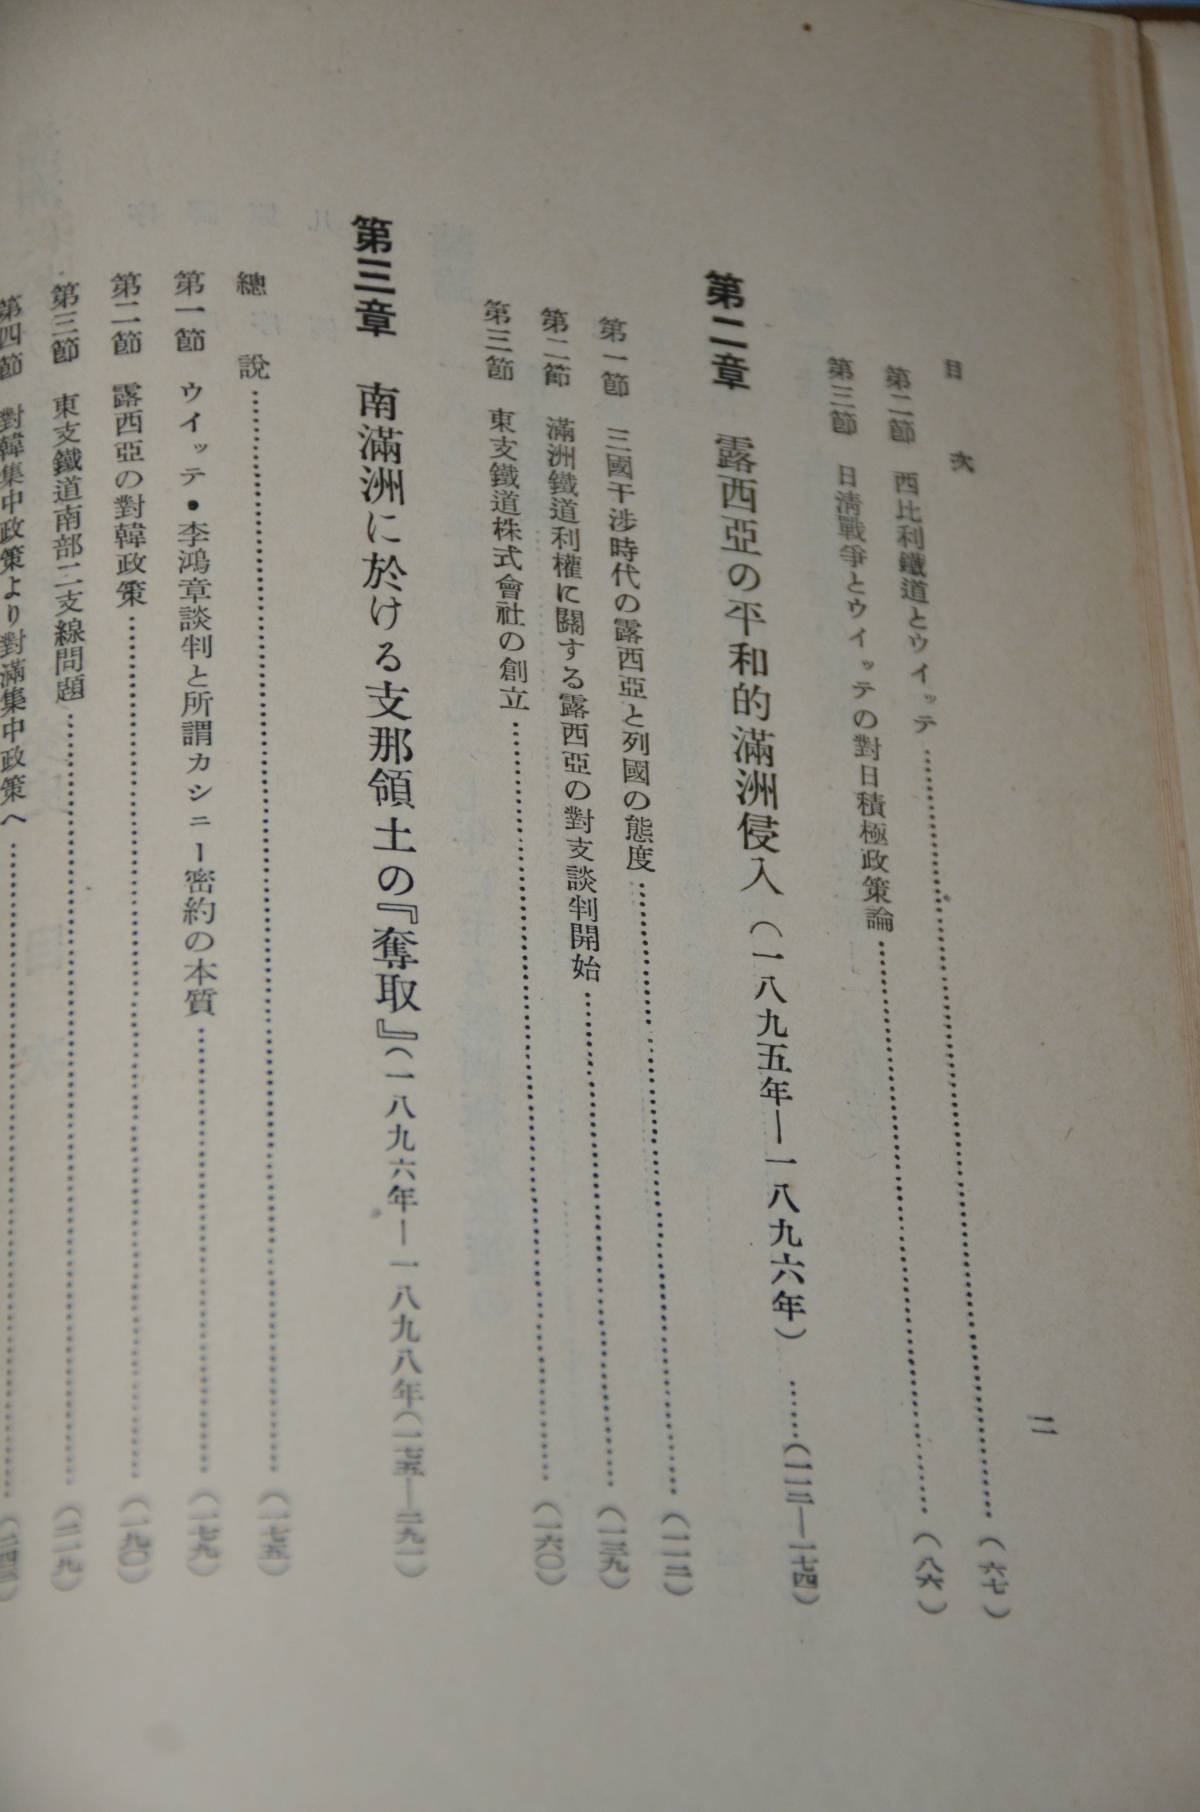 目次
二
第二節 西比利鐵道とウイッテ……(六七)
第三節 日淸戰爭とウイッテの對日積極政策論……(八六)
第二章 露西亞の平和的滿洲侵入(一八九五年—一八九六年)……(一一二—一七四)
第一節 三國干涉時代の露西亞と列國の態度……(一一二)
第二節 滿洲鐵道利權に關する露西亞の對支談判開始……(一三九)
第三節 東支鐵道株式會社の創立……(一六〇)
第三章 南滿洲に於ける支那領土の『奪取』(一八九六年—一八九八年(一七五—二九一)
總說……(一七五)
第一節 ウイッテ・李鴻章談判と所謂カシニー密約の本質……(一七九)
第二節 露西亞の對韓政策……(一九〇)
第三節 東支鐵道南部二支線問題……(二一九)
第四節 對韓集中政策より對滿集中政策へ……